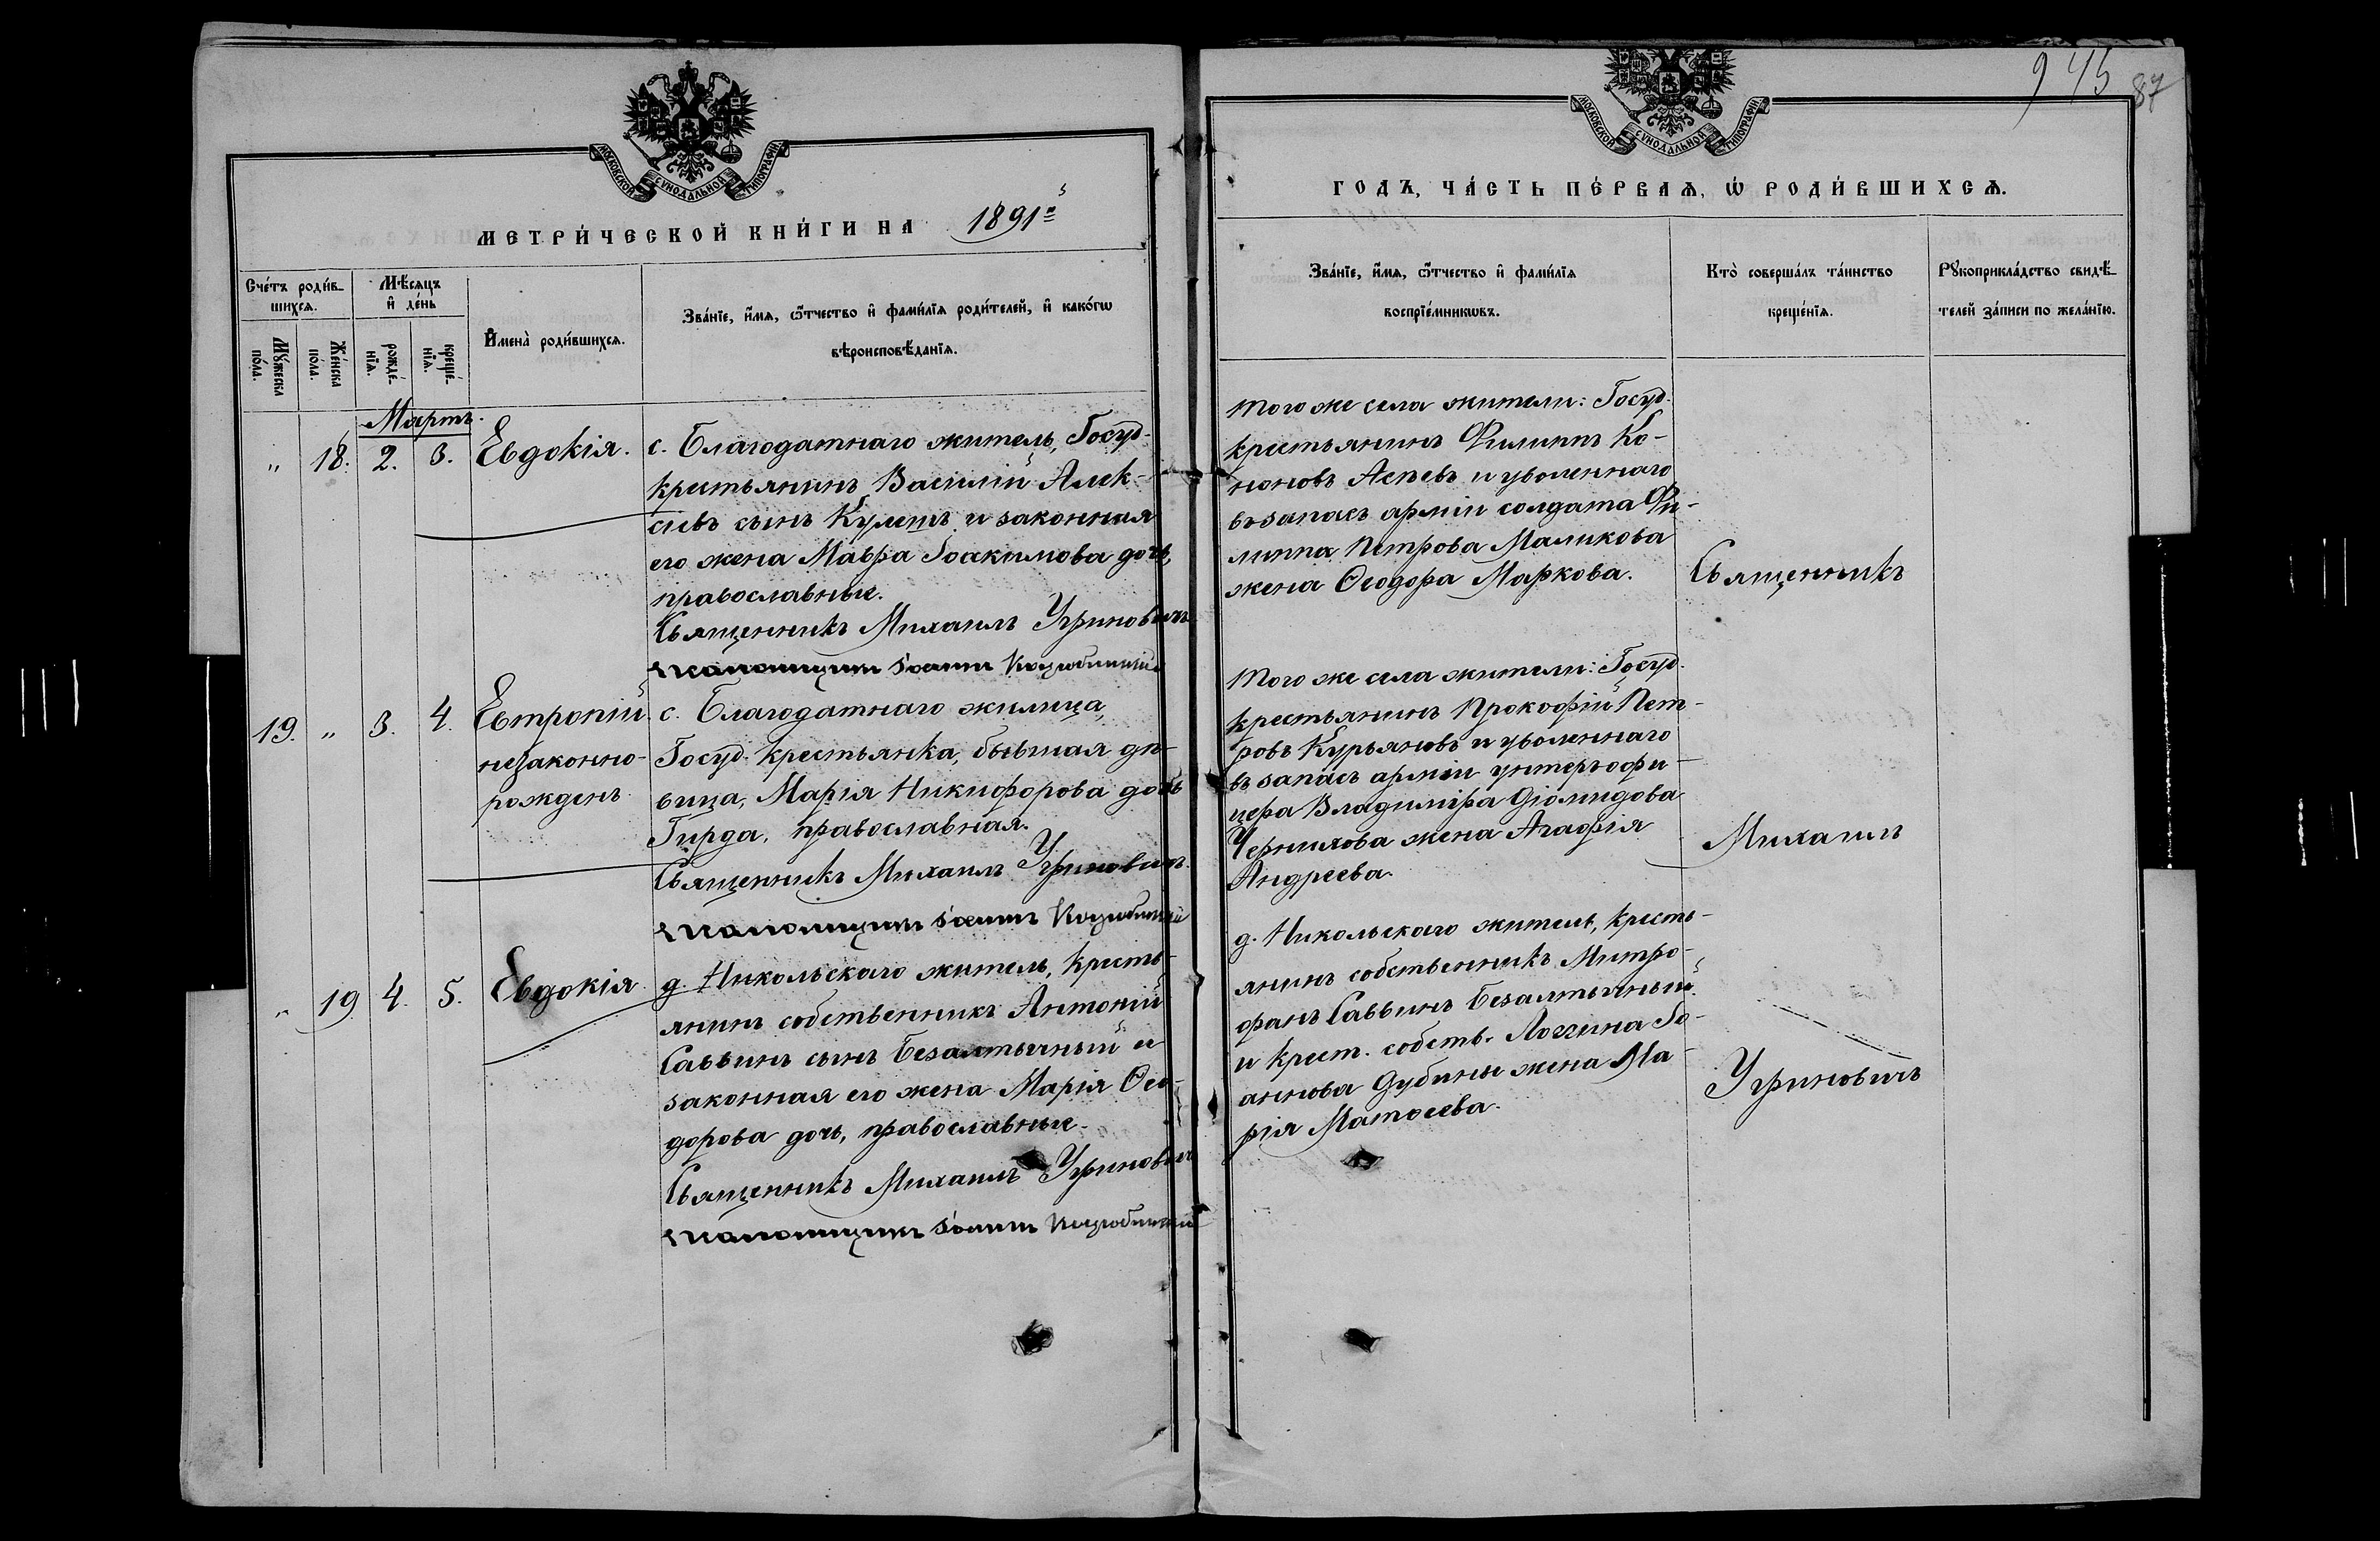 МОСКОВСКОЙ СѴНОДАЛЬНОЙ ТИПОГРАФІИ
МЕТРИ́ЧЕСКОЙ КНИ́ГИ НА 1891й
Сче́тъ роди́в-
шихсѧ.
Мѣ́сѧцъ
и҆ де́нь
Мꙋ́жеска
по́ла.
Же́нска
по́ла.
рожде́-
нїѧ.
креще́-
нїѧ.
И҆мена̀ роди́вшихсѧ.
Зва́нїе, и҆́мѧ, ѻ҆́тчество и҆ фами́лїѧ роди́телей, и҆ како́гѡ
вѣроисповѣ́данїѧ.
Мартъ.
" 18. 2. 3. Евдокія.
с. Благодатнаго житель, Госуд.
крестьянинъ Василій Алек-
сѣевъ сынъ Кулешъ и законная
его жена Мавра Іоакимова дочь,
православные.
Священникъ Михаилъ Угриновичъ
Псаломщикъ Іоаннъ
19. " 3. 4. Евтропій
незаконно-
рожденъ
с. Благодатнаго жилица,
Госуд. крестьянка, бывшая дѣ-
вица, Марія Никифорова дочь
Гирда, православная.
Священникъ Михаилъ Угриновичъ.
Псаломщикъ Іоаннъ
" 19 4. 5. Евдокія
д. Никольскаго житель, кресть-
янинъ собственникъ Антоній
Саввинъ сынъ Безалтычный и
законная его жена Марія Ѳео-
дорова дочь, православные.
Священникъ Михаилъ Угриновичъ
Псаломщикъ Іоаннъ
945 87
МОСКОВСКОЙ СѴНОДАЛЬНОЙ ТИПОГРАФІИ
ГОДЪ, ЧА́СТЬ ПЕ́РВАѦ, Ѡ҆ РОДИ́ВШИХСѦ.
Зва́нїе, и҆́мѧ, ѻ҆́тчество и҆ фами́лїѧ
воспрїе́мникѡвъ.
Кто̀ соверша́лъ та́инство
креще́нїѧ.
Рꙋкоприкла́дство свидѣ́-
телей за́писи по жела́нїю.
Того же села жители: Госуд.
крестьянинъ Филиппъ Ко-
ноновъ Асѣевъ и уволеннаго
въ запасъ арміи солдата Фи-
липпа Петрова Маликова
жена Ѳеодора Маркова.
Того же села жители: Госуд.
крестьянинъ Прокофій Пет-
ровъ Курьяновъ и уволеннаго
въ запасъ арміи унтеръ офи-
цера Владиміра Діомидова
Чернихова жена Агафія
Андреева.
д. Никольскаго житель, кресть-
янинъ собственникъ Митро-
фанъ Саввинъ Безалтычный
и крест. собств. Логгина Іо-
аннова Дубины жена Ма-
рія Матѳеева.
Священникъ
Михаилъ
Угриновичъ